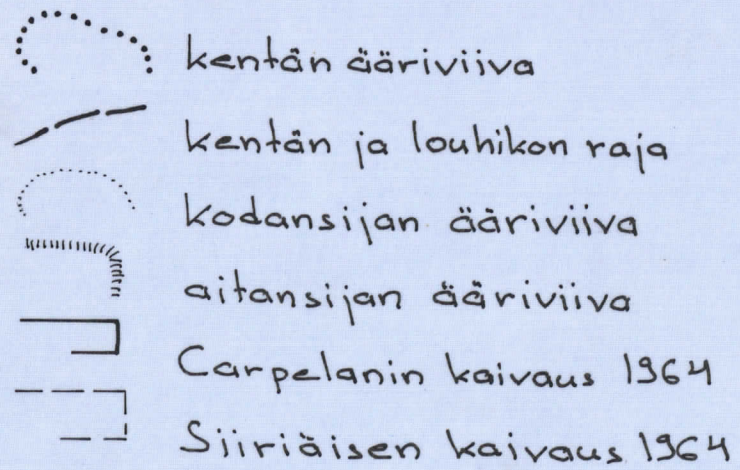 kentän ääriviiva
kentän ja louhikon raja
kodansijan ääriviiva
aitansijan ääriviiva
Carpelanin kaivaus 1964
Siiriäisen kaivaus 1964